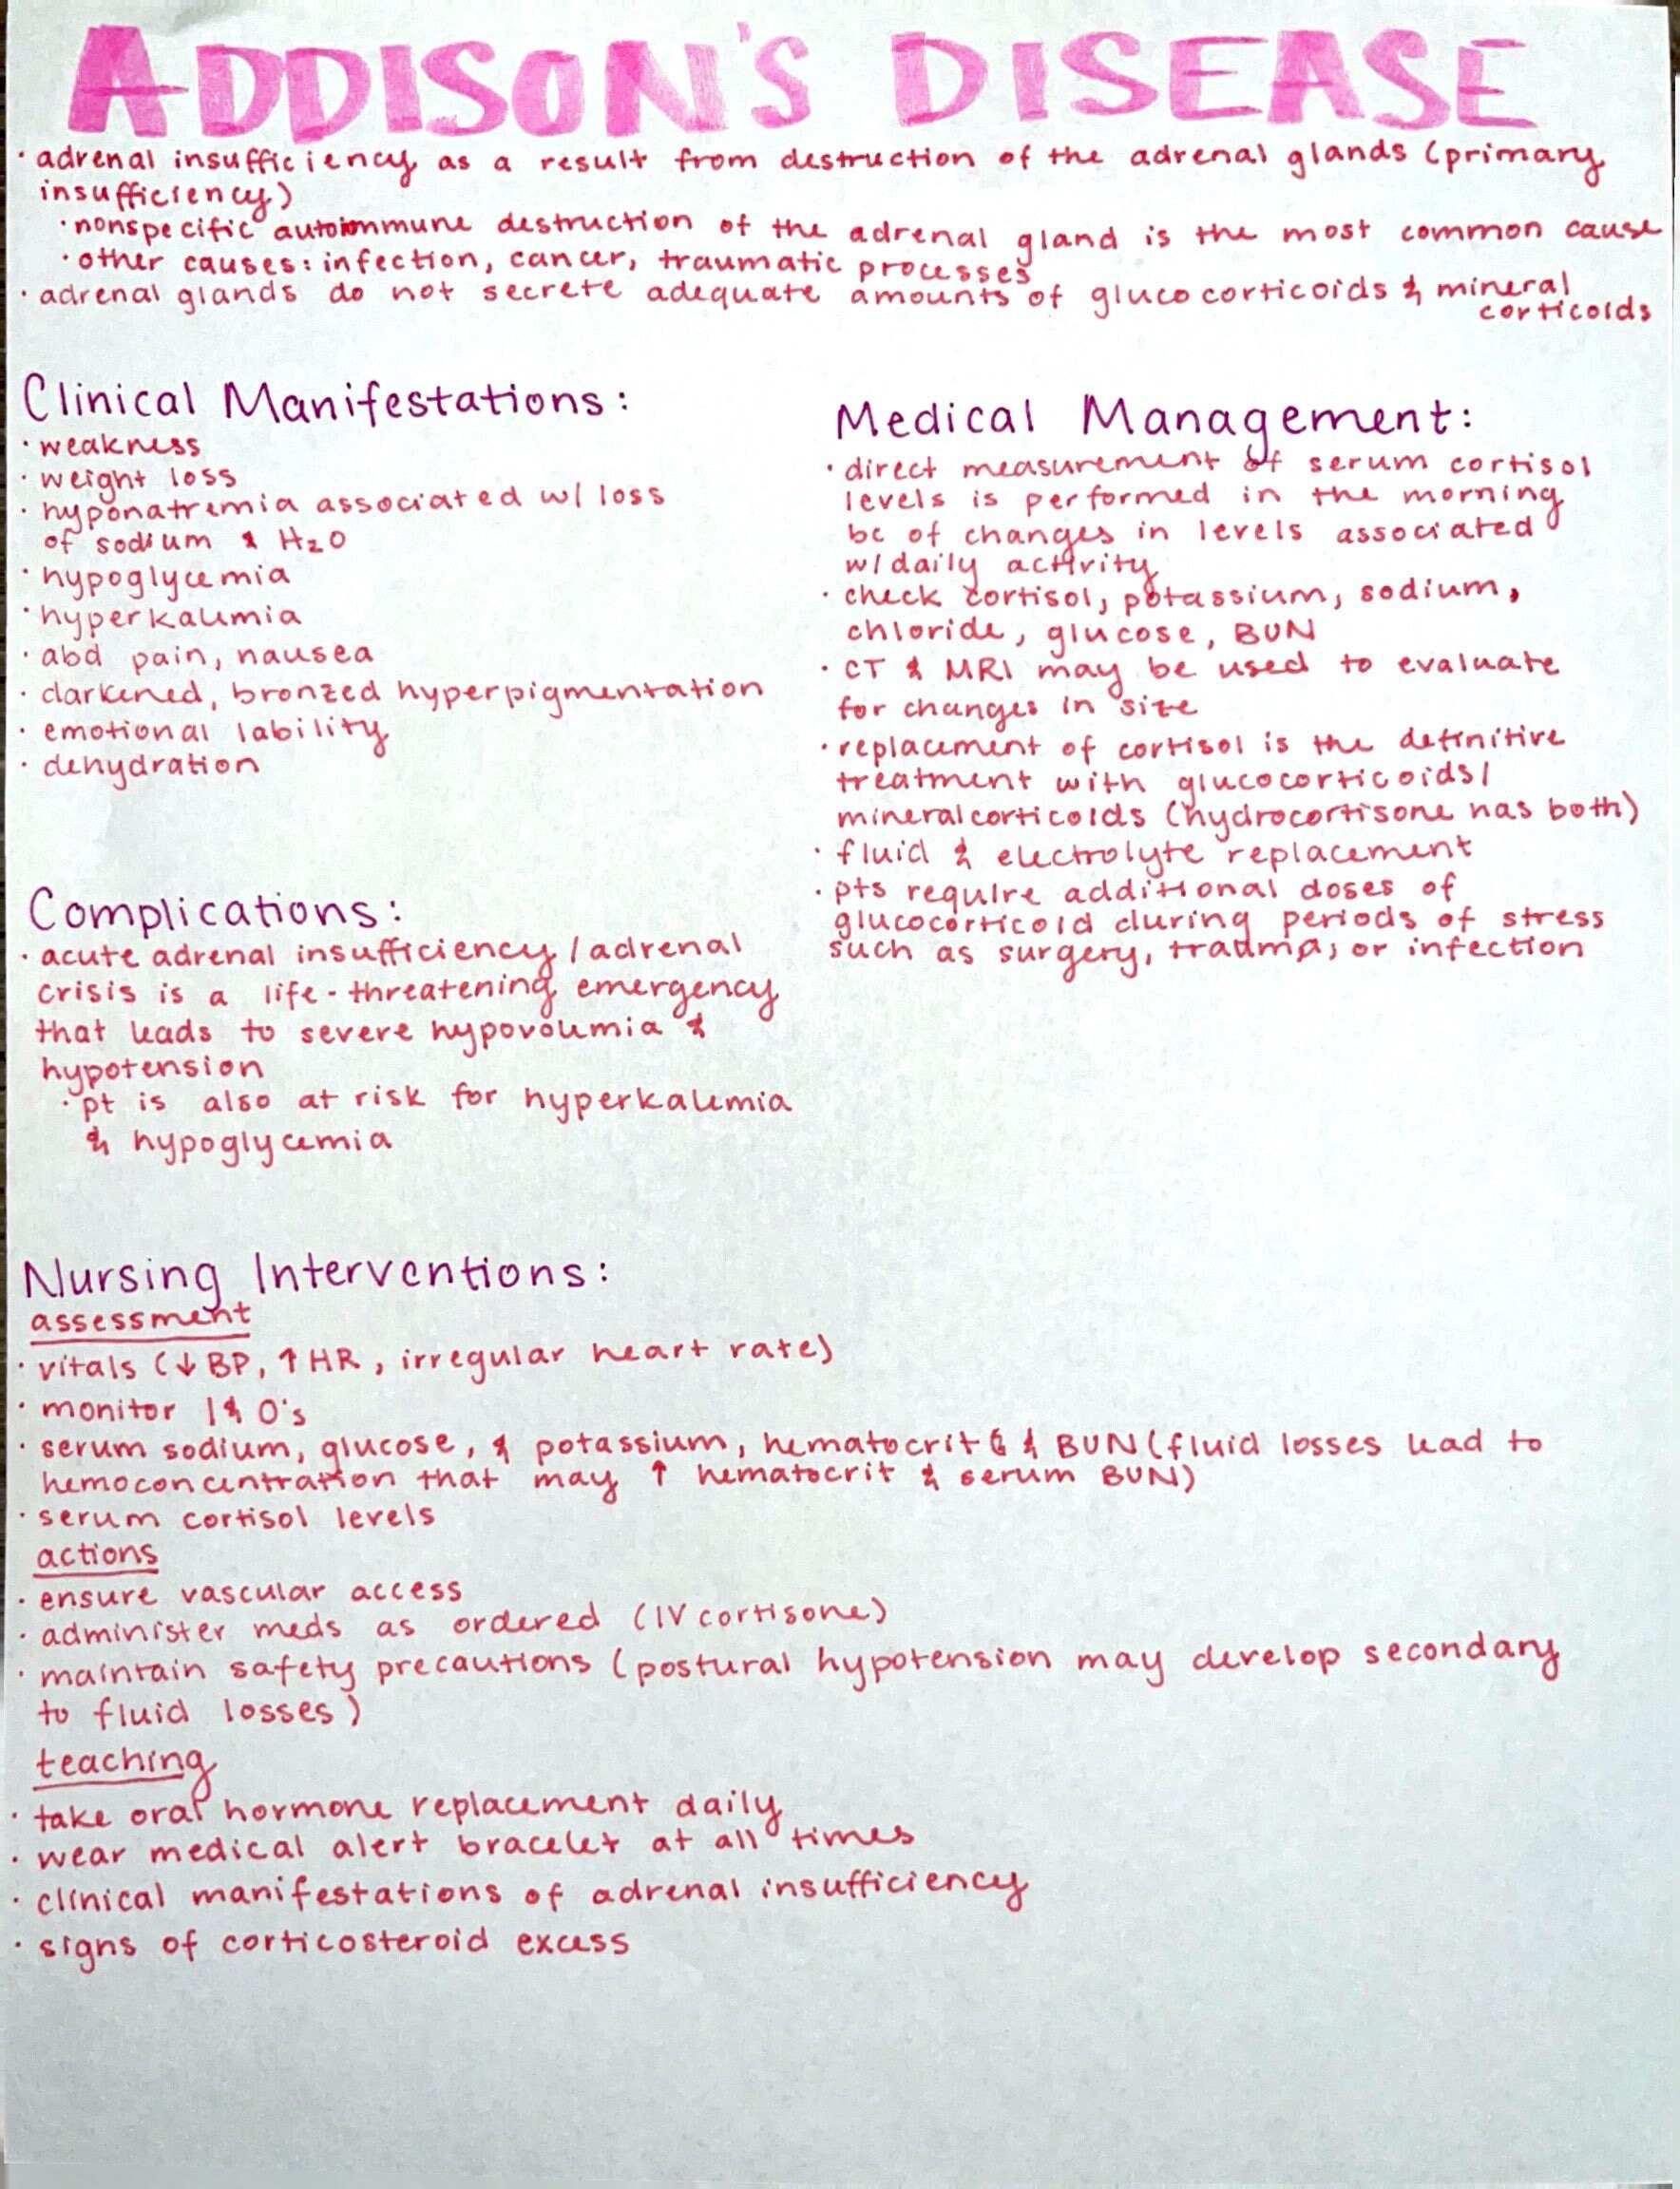 ADDISON'S DISEASE
· adrenal insufficiency as a result from destruction of the adrenal glands (primary
insufficiency)
· nonspecific autoimmune destruction of the adrenal gland is the most common cause
· other causes: infection, cancer, traumatic processes
· adrenal glands do not secrete adequate amounts of glucocorticoids & mineral
corticoids
Clinical Manifestations:
· weakness
· weight loss
· hyponatremia associated w/ loss
of sodium & H₂O
· hypoglycemia
· hyperkalemia
· abd pain, nausea
· darkened, bronzed hyperpigmentation
· emotional lability
· dehydration
Complications:
· acute adrenal insufficiency/adrenal
crisis is a life-threatening emergency
that leads to severe hypovolemia &
hypotension
· pt is also at risk for hyperkalemia
& hypoglycemia
Medical Management:
· direct measurement of serum cortisol
levels is performed in the morning
bc of changes in levels associated
w/daily activity
· check cortisol, potassium, sodium,
chloride, glucose, BUN
· CT & MRI may be used to evaluate
for changes in size
· replacement of cortisol is the definitive
treatment with glucocorticoids/
mineralcorticoids (hydrocortisone has both)
· fluid & electrolyte replacement
· pts require additional doses of
glucocorticoid during periods of stress
such as surgery, trauma, or infection
Nursing Interventions:
assessment
· vitals (↓BP, ↑HR, irregular heart rate)
· monitor I&O's
· serum sodium, glucose, & potassium, hematocrit & BUN (fluid losses lead to
hemoconcentration that may ↑ hematocrit & serum BUN)
· serum cortisol levels
actions
· ensure vascular access
· administer meds as ordered (IV cortisone)
· maintain safety precautions (postural hypotension may develop secondary
to fluid losses)
teaching
· take oral hormone replacement daily
· wear medical alert bracelet at all times
· clinical manifestations of adrenal insufficiency
· signs of corticosteroid excess